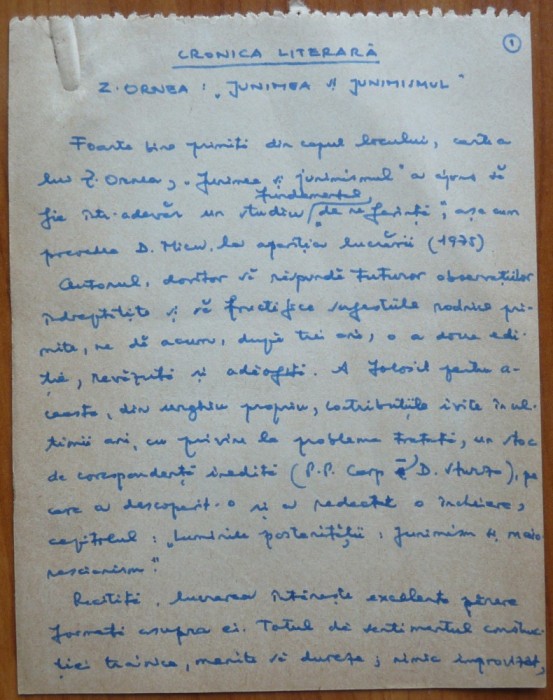 CRONICA LITERARĂ
1
Z. ORNEA : „JUNIMEA ȘI JUNIMISMUL"
Foarte bine primită din capul locului, cartea
lui Z. Ornea, „Junimea și junimismul" a ajuns să
fundamental,
fie într-adevăr un studiu „de referință", așa cum
prevedea D. Micu, la apariția lucrării (1975)
Autorul, doritor să răspundă tuturor observațiilor
îndreptățite și să fructifice sugestiile rodnice pri-
mite, ne dă acum, după trei ani, o a doua edi-
ție, revăzută și adăogită. A folosit pentru a-
ceasta, din unghiu propriu, contribuțiile ivite în ul-
timii ani, cu privire la problema tratată, un stoc
de corespondență inedită (P.P. Carp D. Sturza), pe
care a descoperit-o și a redactat o încheiere,
capitolul : „Luminile posterității : Junimism și maio-
rescianism."
Recitită, lucrarea întărește excelenta părere
formată asupra ei. Totul dă sentimentul construc-
ției trainice, menite să dureze ; nimic improvizat,